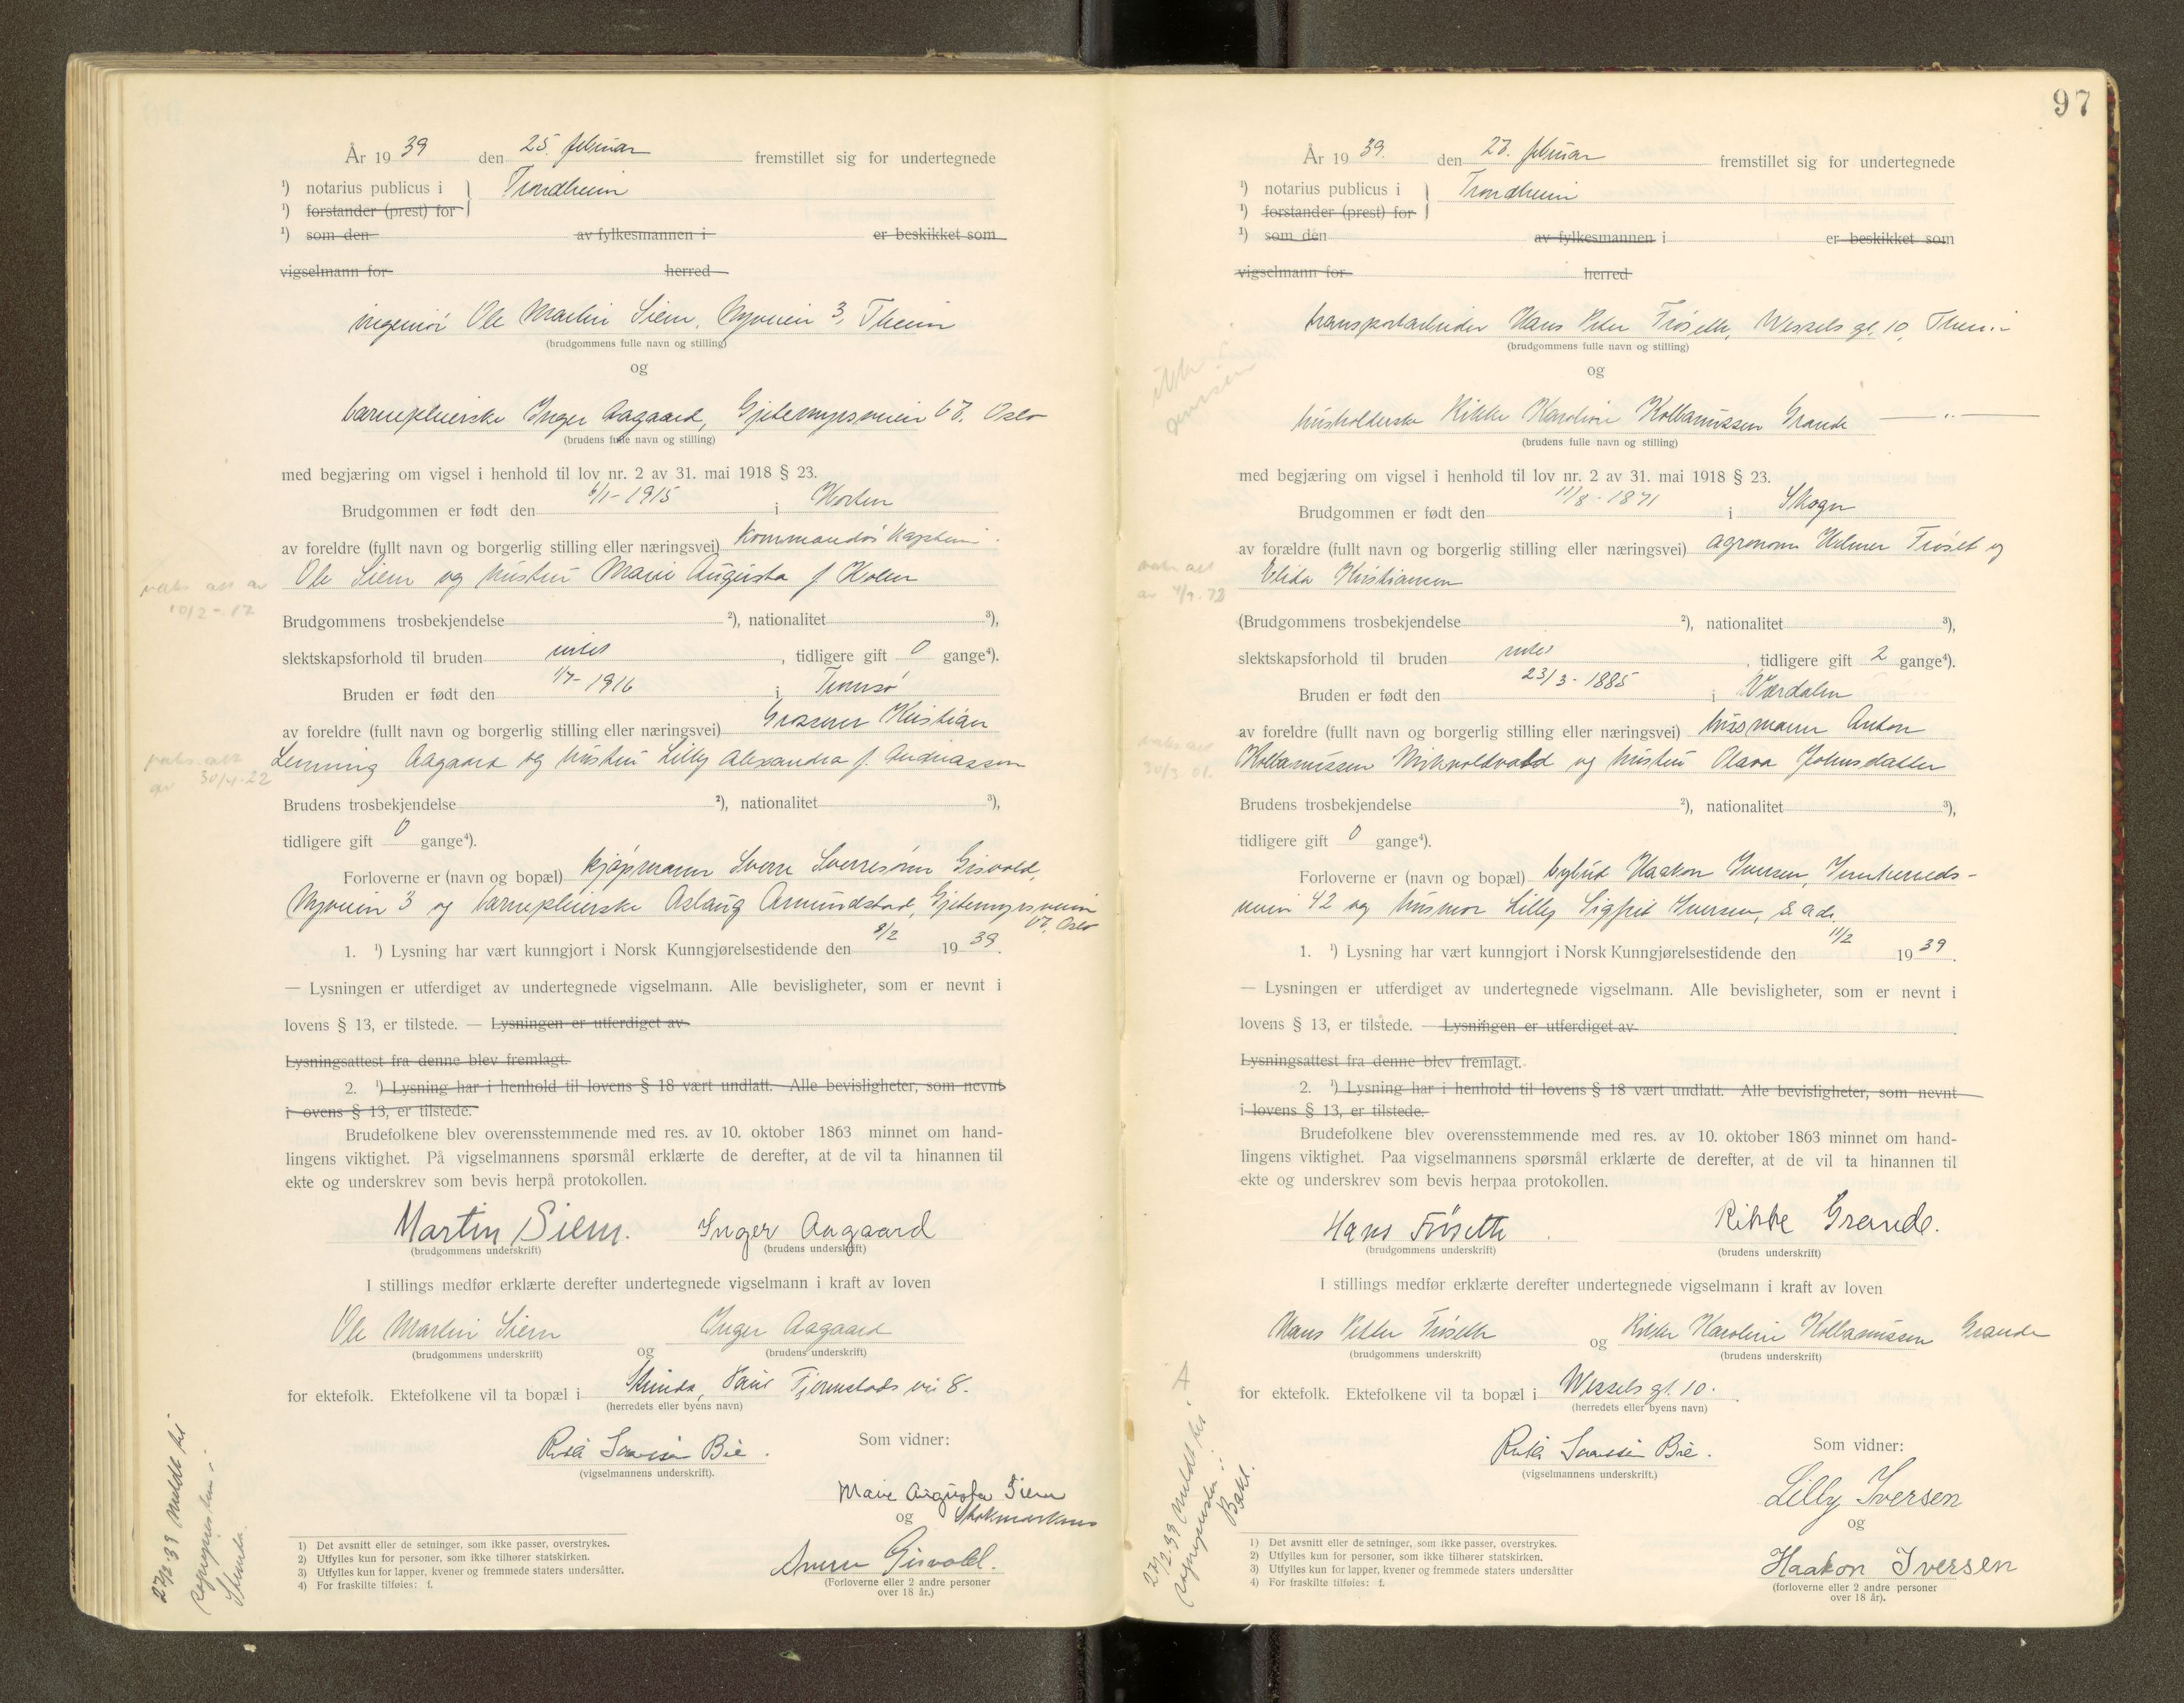 År 1939 den 25. februar fremstillet sig for undertegnede
¹) notarius publicus i Trondheim
¹) forstander (prest) for
¹) som den av fylkesmannen i er beskikket som
vigselmann for herred
ingeniør Ole Martin Siem, Nyveien 3, Theim
(brudgommens fulle navn og stilling)
og
barnepleierske Inger Aagaard, Gjetemyrsveien 67. Oslo
(brudens fulle navn og stilling)
med begjæring om vigsel i henhold til lov nr. 2 av 31. mai 1918 § 23.
Brudgommen er født den 6/1-1915 i Horten
av foreldre (fullt navn og borgerlig stilling eller næringsvei) kommandørkaptein
Ole Siem og hustru Marie Augusta f. Holm
vaks att av
10/2-17
Brudgommens trosbekjendelse ²), nationalitet ³),
slektskapsforhold til bruden intet, tidligere gift 0 gange⁴).
Bruden er født den 1/7-1916 i Tromsø
av foreldre (fullt navn og borgerlig stilling eller næringsvei) Grosserer Kristian
Lemming Aagaard og hustru Lilly Alexandra f. Andreassen
vaks. att
av 30/4-22
Brudens trosbekjendelse ²), nationalitet ³),
tidligere gift 0 gange⁴).
Forloverne er (navn og bopæl) kjøpmann Sverre Sverresønn Gisvold,
Nyveien 3 og barnepleierske Aslaug Amundstad, Gjetemyrsveien
67, Oslo
1. ¹) Lysning har vært kunngjort i Norsk Kunngjørelsestidende den 8/2 1939.
— Lysningen er utferdiget av undertegnede vigselmann. Alle bevisligheter, som er nevnt i
lovens § 13, er tilstede. — Lysningen er utferdiget av
Lysningsattest fra denne blev fremlagt.
2. ¹) Lysning har i henhold til lovens § 18 vært undlatt. Alle bevisligheter, som nevnt
i ovens § 13, er tilstede.
Brudefolkene blev overensstemmende med res. av 10. oktober 1863 minnet om hand-
lingens viktighet. På vigselmannens spørsmål erklærte de derefter, at de vil ta hinannen til
ekte og underskrev som bevis herpå protokollen.
Martin Siem. Inger Aagaard
(brudgommens underskrift) (brudens underskrift)
I stillings medfør erklærte derefter undertegnede vigselmann i kraft av loven
Ole Martin Siem og Inger Aagaard
(brudgommens underskrift) (brudens underskrift)
for ektefolk. Ektefolkene vil ta bopæl i Strinda, Fjermstads vei 8.
(herredets eller byens navn)
Bie.
(vigselmannens underskrift).
Som vidner:
Marie Augusta Siem
og Stokmarknes
Sverre Gisvold.
(Forloverne eller 2 andre personer
over 18 år.)
27/2-39 Meldt til
Strinda.
1) Det avsnitt eller de setninger, som ikke passer, overstrykes.
2) Utfylles kun for personer, som ikke tilhører statskirken.
3) Utfylles kun for lapper, kvener og fremmede staters undersåtter.
4) For fraskilte tilføies: f.
97
År 1939. den 27. februar fremstillet sig for undertegnede
¹) notarius publicus i Trondheim
¹) forstander (prest) for
¹) som den av fylkesmannen i er beskikket som
vigselmann for herred
transportarbeider Hans Peter Frøseth, Wessels gt. 10, Theim
(brudgommens fulle navn og stilling)
og
husholderske Rikke Karoline Kolbanussen Grande —„—
(brudens fulle navn og stilling)
med begjæring om vigsel i henhold til lov nr. 2 av 31. mai 1918 § 23.
Brudgommen er født den 11/8-1871 i Skogn
av forældre (fullt navn og borgerlig stilling eller næringsvei) agronom Helmer Frøset og
Elida Kristiansen
vaks att
av 4/9.72
(Brudgommens trosbekjendelse ²), nationalitet ³),
slektskapsforhold til bruden intet, tidligere gift 2 gange⁴).
Bruden er født den 23/3-1885 i Værdalen
av foreldre (fullt navn og borgerlig stilling eller næringsvei) husmann Anton
Kolbanussen og hustru Olava Johnsdatter
vaks att
30/3 01.
Brudens trosbekjendelse ²), nationalitet ³),
tidligere gift 0 gange⁴).
Forloverne er (navn og bopæl) bybud Haakon Iversen, Innherreds-
veien 42 og husmor Lilly Sigfrid Iversen, s. adr.
1. ¹) Lysning har vært kunngjort i Norsk Kunngjørelsestidende den 11/2 1939.
— Lysningen er utferdiget av undertegnede vigselmann. Alle bevisligheter, som er nevnt i
lovens § 13, er tilstede. — Lysningen er utferdiget av
Lysningsattest fra denne blev fremlagt.
2. ¹) Lysning har i henhold til lovens § 18 vært undlatt. Alle bevisligheter, som nevnt
i lovens § 13, er tilstede.
Brudefolkene blev overensstemmende med res. av 10. oktober 1863 minnet om hand-
lingens viktighet. Paa vigselmannens spørsmål erklærte de derefter, at de vil ta hinannen til
ekte og underskrev som bevis herpaa protokollen.
Hans Frøseth Rikke Grande.
(brudgommens underskrift) (brudens underskrift)
I stillings medfør erklærte derefter undertegnede vigselmann i kraft av loven
Hans Petter Frøseth og Rikke Karoline Kolbanussen Grande
(brudgommens underskrift) (brudens underskrift)
for ektefolk. Ektefolkene vil ta bopæl i Wessels gt. 10.
(herredets eller byens navn)
Bie.
(vigselmannens underskrift.)
Som vidner:
Lilly Iversen
og
Haakon Iversen
(forloverne eller 2 andre personer
over 18 år).
A
27/2 39 Meldt til
Bakl.
1) Det avsnitt eller de setninger, som ikke passer, overstrykes.
2) Utfylles kun for personer, som ikke tilhører statskirken.
3) Utfylles kun for lapper, kvener og fremmede staters undersåtter
4) For fraskilte tilføies: f.